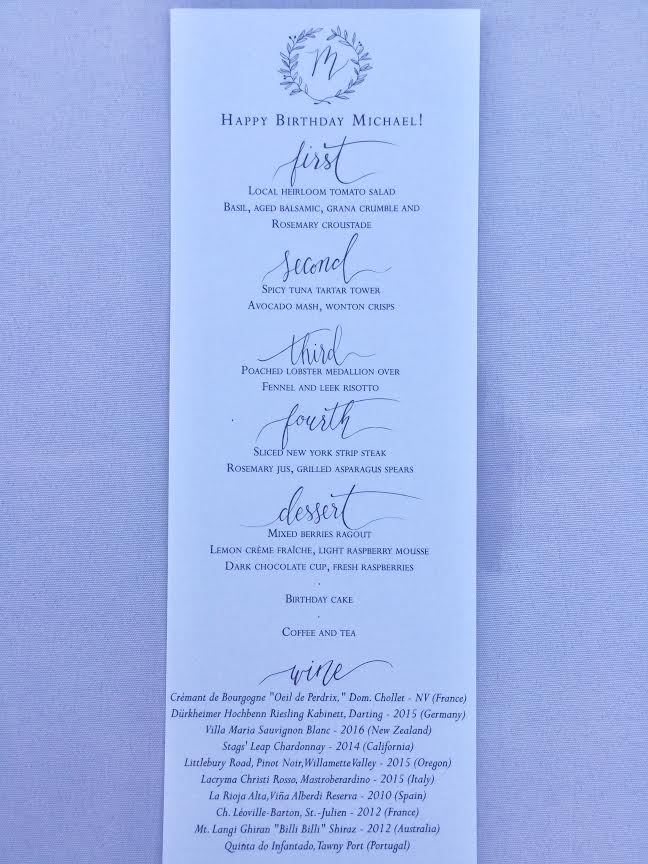 M
Happy Birthday Michael!
first
Local heirloom tomato salad
Basil, aged balsamic, grana crumble and
Rosemary croustade
second
Spicy tuna tartar tower
Avocado mash, wonton crisps
third
Poached lobster medallion over
Fennel and leek risotto
fourth
Sliced new york strip steak
Rosemary jus, grilled asparagus spears
dessert
Mixed berries ragout
Lemon crème fraîche, light raspberry mousse
Dark chocolate cup, fresh raspberries
.
Birthday cake
.
Coffee and tea
wine
Crémant de Bourgogne "Oeil de Perdrix," Dom. Chollet - NV (France)
Dürkheimer Hochbenn Riesling Kabinett, Darting - 2015 (Germany)
Villa Maria Sauvignon Blanc - 2016 (New Zealand)
Stags' Leap Chardonnay - 2014 (California)
Littlebury Road, Pinot Noir,Willamette Valley - 2015 (Oregon)
Lacryma Christi Rosso, Mastroberardino - 2015 (Italy)
La Rioja Alta,Viña Alberdi Reserva - 2010 (Spain)
Ch. Léoville-Barton, St.-Julien - 2012 (France)
Mt. Langi Ghiran "Billi Billi" Shiraz - 2012 (Australia)
Quinta do Infantado,Tawny Port (Portugal)